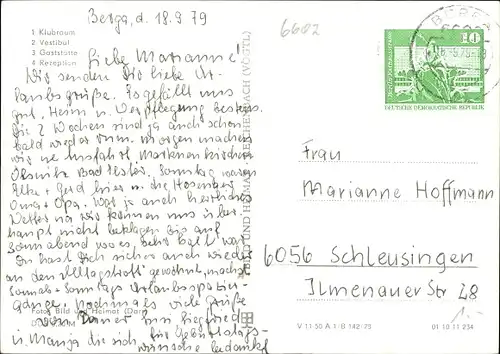 Berga, d. 18.9.79
6602
1 Klubraum
2 Vestibül
3 Gaststätte
4 Rezeption
Liebe Marianne!
Wir senden Dir liebe Ur-
laubsgrüße. Es gefällt uns
gut. Heim u. Verpflegung bestens.
Die 2 Wochen sind ja auch schon
bald wieder rum. Morgen machen
wir ne Busfahrt Markneukirchen
Oelsnitz Bad Elster. Sonntag waren
+ Gerd hier u. die
Oma + Opa. War ja auch herrliches
Wetter na wir können uns über-
haupt nicht beklagen bis auf
Sonnabend wo es sehr kalt war.
Du hast Dich sicher auch wieder
an den Alltagstrott gewöhnt, machst
Sonnab + Sonntags Urlaubsspazier-
gänge. Nochmals viele Grüße
von Deiner Siegfried
u. Manga die sich für Geburtstags-
wünsche bedankt
Foto: Bild und Heimat (Darr)
BILD UND HEIMAT REICHENBACH (VOGTL)
BERGA
10
DEUTSCHE DEMOKRATISCHE REPUBLIK
Frau
Marianne Hoffmann
6056 Schleusingen
Ilmenauer Str 28
1.-
V 11 50 A 1/B 142/75
01 10 11 234